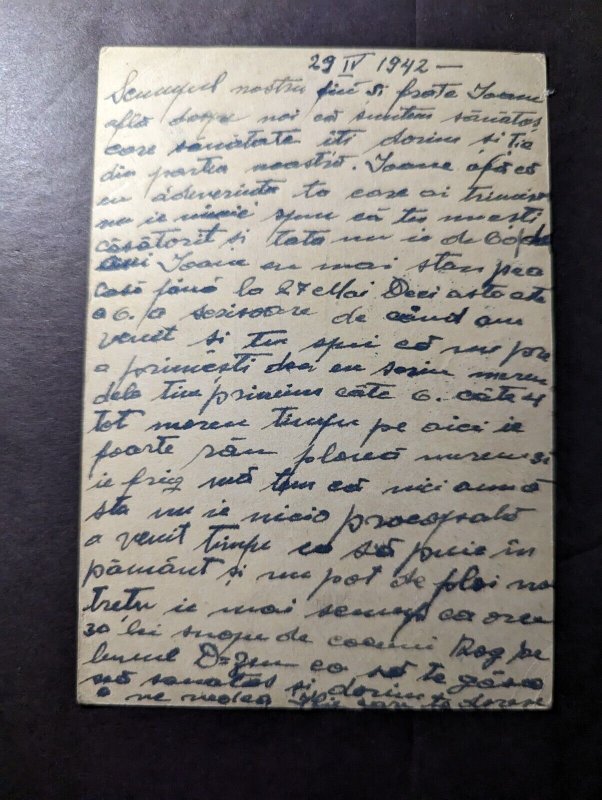 29 IV 1942 —
Scumpul nostru fiu si frate Ioane
află despre noi că suntem sănătoș
care sanatate iti dorim si ție
din partea noastră. Ioane află că
cu adeverinta ta care ai trimis
nu ie nimic spun că tu nu ești
căsătorit si tata nu ie de 60 de
ani Ioane eu mai stau pea
casă până la 27 Mai Deci asta este
a 6. a scrisoare de când am
venit si tu spui că nu pre
a primești dea eu scriu mereu
dela tine primim câte 6. câte 4
tot mereu timpu pe aici ie
foarte rău plouă mereu și
ie frig mă tem că nici anu
sta nu ie nicio procopsală
a venit timpu ca să puie în
pământ și nu pot de ploi
ie mai scump ca orea
30 lei snopu de coceni Rog pe
bunul D-zeu ca să te găsea
scă sanatos si dorim
a ne vedea